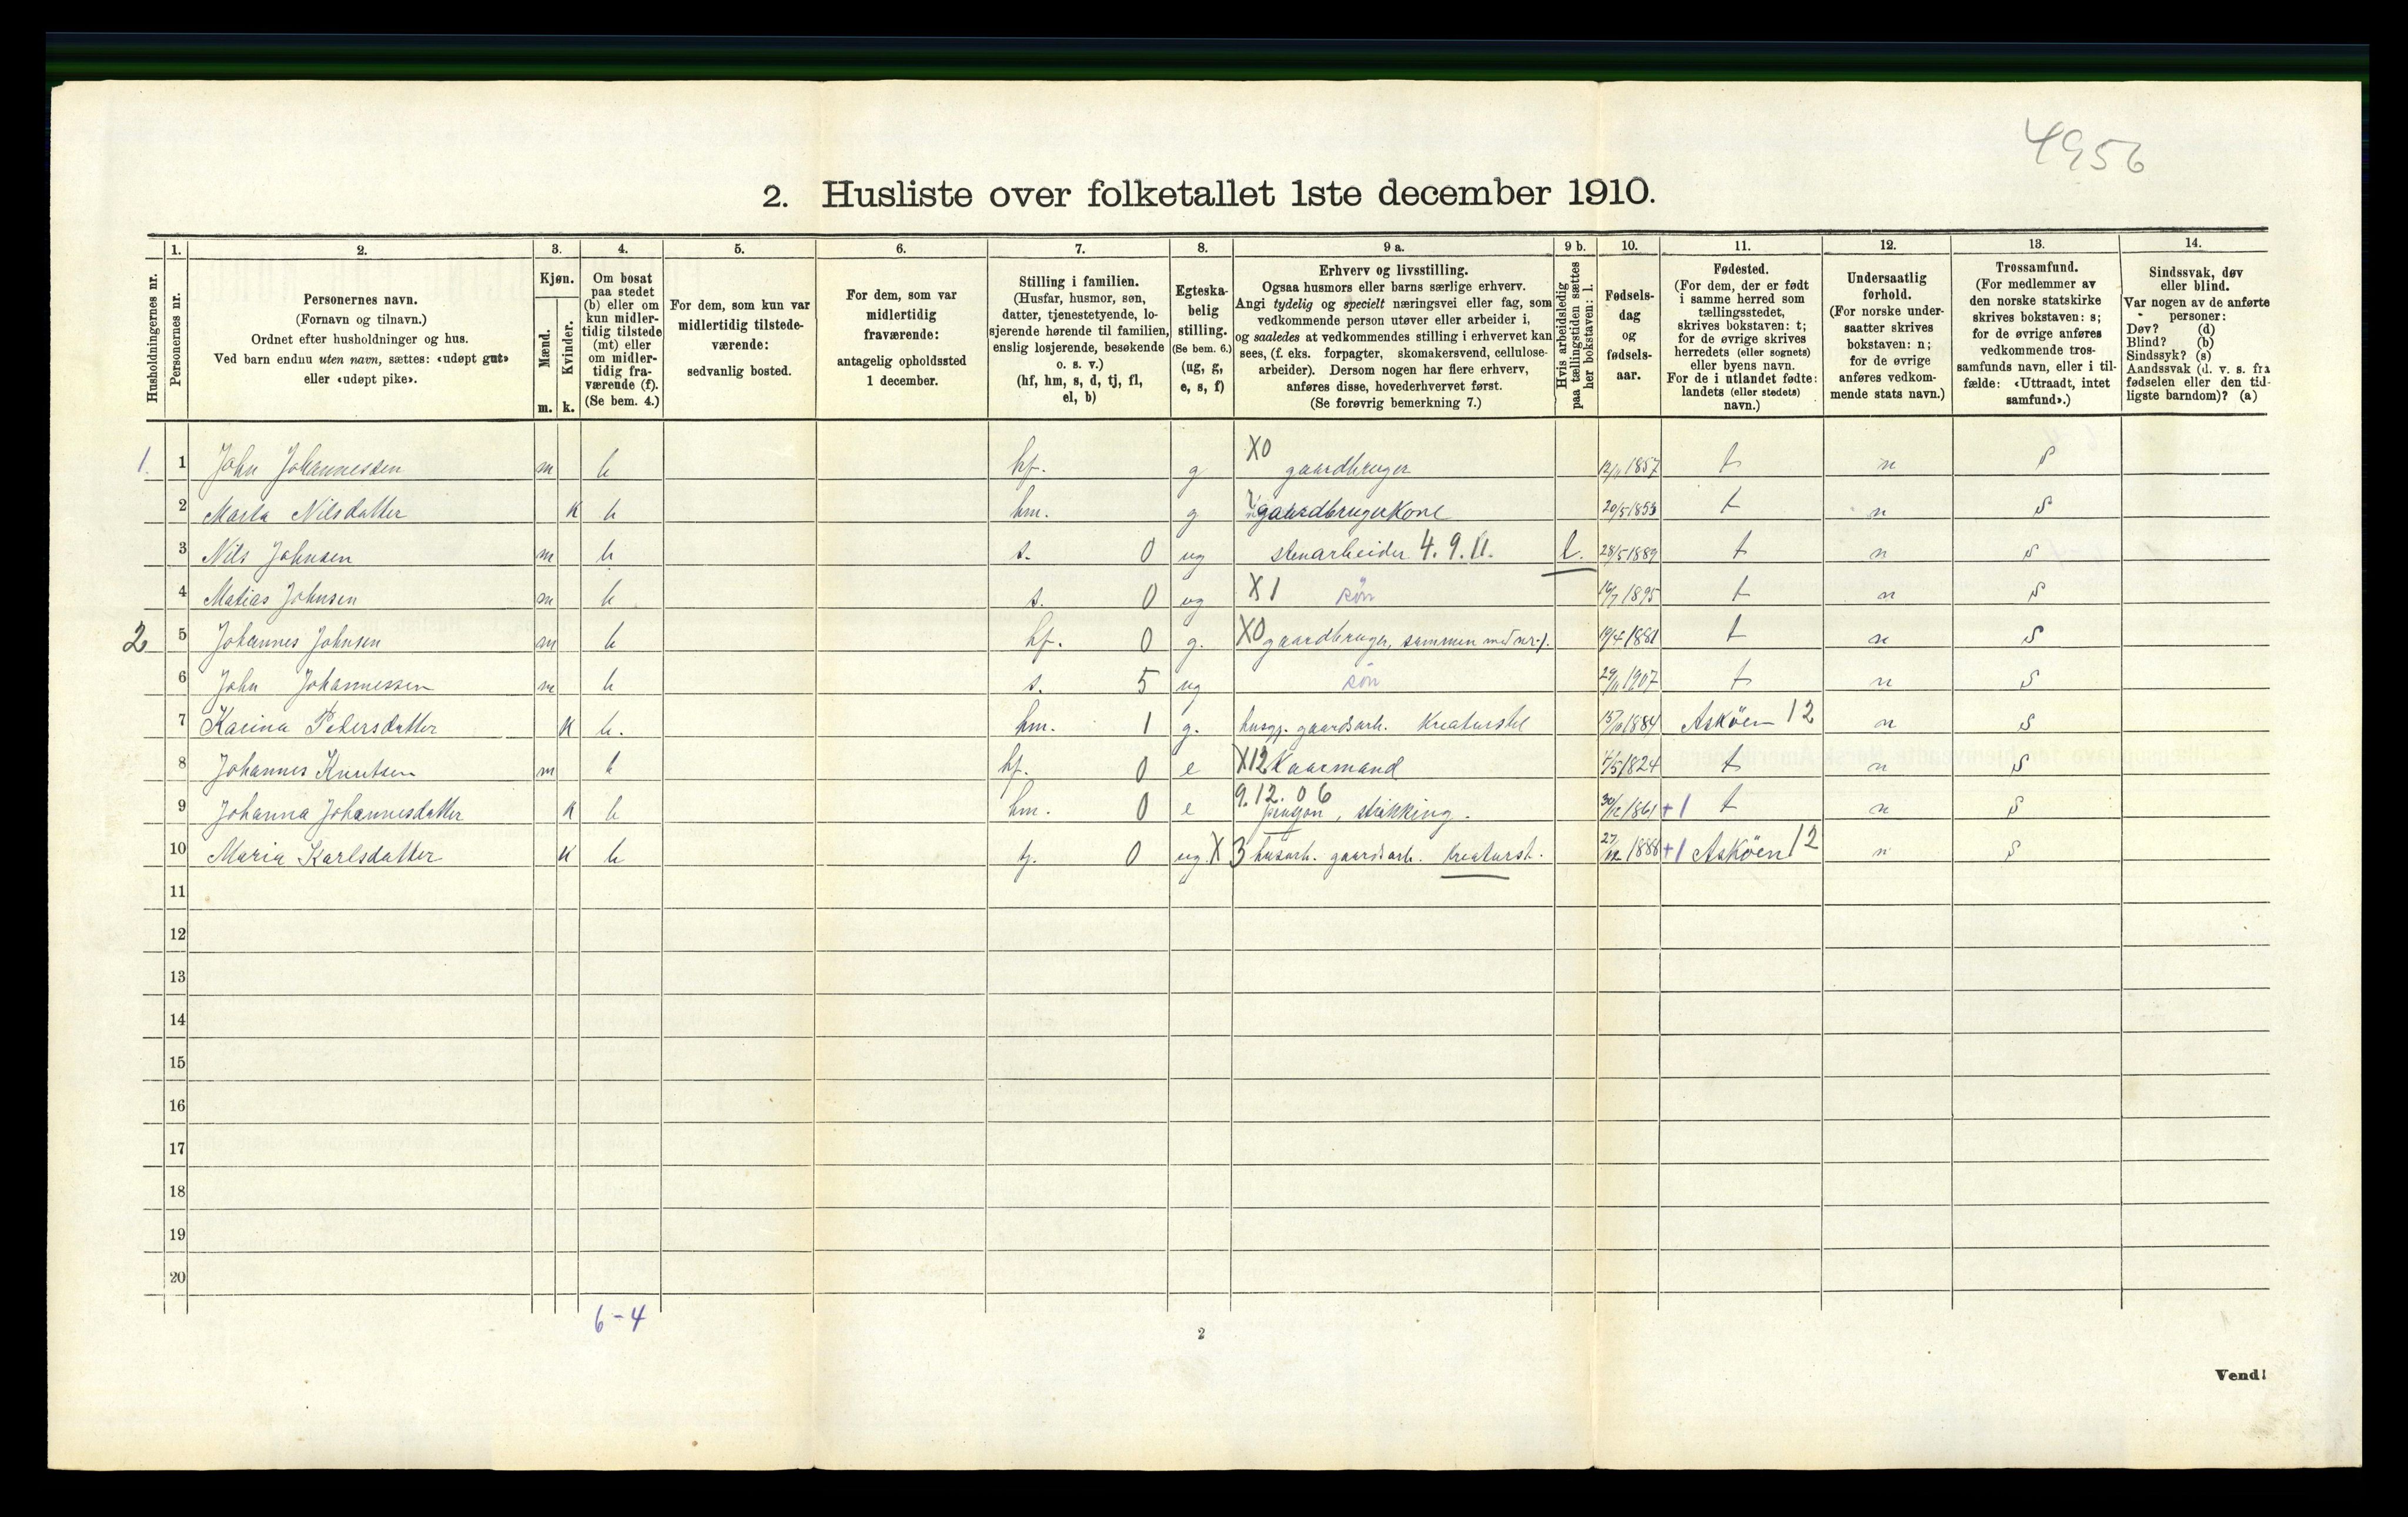 4956
2. Husliste over folketallet 1ste december 1910.
Husholdningernes nr.
1. Personernes nr.
2. Personernes navn.
(Fornavn og tilnavn.)
Ordnet efter husholdninger og hus.
Ved barn endnu uten navn, sættes: «udøpt gut»
eller «udøpt pike».
3. Kjøn.
Mænd. m.
Kvinder. k.
4. Om bosat
paa stedet
(b) eller om
kun midler-
tidig tilstede
(mt) eller
om midler-
tidig fra-
værende (f).
(Se bem. 4.)
5. For dem, som kun var
midlertidig tilstede-
værende:
sedvanlig bosted.
6. For dem, som var
midlertidig
fraværende:
antagelig opholdssted
1 december.
7. Stilling i familien.
(Husfar, husmor, søn,
datter, tjenestetyende, lo-
sjerende hørende til familien,
enslig losjerende, besøkende
o. s. v.)
(hf, hm, s, d, tj, fl,
el, b)
8. Egteska-
belig
stilling.
(Se bem. 6.)
(ug, g,
e, s, f)
9 a. Erhverv og livsstilling.
Ogsaa husmors eller barns særlige erhverv.
Angi tydelig og specielt næringsvei eller fag, som
vedkommende person utøver eller arbeider i,
og saaledes at vedkommendes stilling i erhvervet kan
sees, (f. eks. forpagter, skomakersvend, cellulose-
arbeider). Dersom nogen har flere erhverv,
anføres disse, hovederhvervet først.
(Se forøvrig bemerkning 7.)
9 b. Hvis arbeidsledig
paa tællingstiden sættes
her bokstaven: l.
10. Fødsels-
dag
og
fødsels-
aar.
11. Fødested.
(For dem, der er født
i samme herred som
tællingsstedet,
skrives bokstaven: t;
for de øvrige skrives
herredets (eller sognets)
eller byens navn.
For de i utlandet fødte:
landets (eller stedets)
navn.)
12. Undersaatlig
forhold.
(For norske under-
saatter skrives
bokstaven: n;
for de øvrige
anføres vedkom-
mende stats navn.)
13. Trossamfund.
(For medlemmer av
den norske statskirke
skrives bokstaven: s;
for de øvrige anføres
vedkommende tros-
samfunds navn, eller i til-
fælde: «Uttraadt, intet
samfund».)
14. Sindssvak, døv
eller blind.
Var nogen av de anførte
personer:
Døv? (d)
Blind? (b)
Sindssyk? (s)
Aandssvak (d. v. s. fra
fødselen eller den tid-
ligste barndom)? (a)
1. 1 John Johannessen m b hf. g X0 gaardbruger 12/11 1857 t n s
2 Marta Nilsdatter k b hm. g gaardbrugerkone 20/5 1853 t n s
3 Nils Johnsen m b s. 0 ug stenarbeider 4.9.11. l. 28/5 1889 t n s
4 Matias Johnsen m b s. 0 ug X1 søn 19/7 1895 t n s
2 5 Johannes Johnsen m b hf. 0 g. X0 gaardbruger, sammen med nr 1. 19/4 1881 t n s
6 John Johannessen m b s. 5 ug søn 29/11 1907 t n s
7 Karina Petersdatter k b. hm. 1 g. husgj. gaardsarb. Kreaturstel 1884 Askøen 12 n s
8 Johannes Knutsen m b hf. 0 e X12 Kaarmand 1824 t n s
9 Johanna Johannesdatter k b hm. 0 e 9.12.06 pensjon, strikking. 30/12 1861 +1 t n s
10 Maria Karlsdatter k b tj. 0 ug. X3 husarb. gaardsarb. Kreaturst. 1888 +1 Askøen 12 n s
11
12
13
14
15
16
17
18
19
20
6-4
2
Vend!